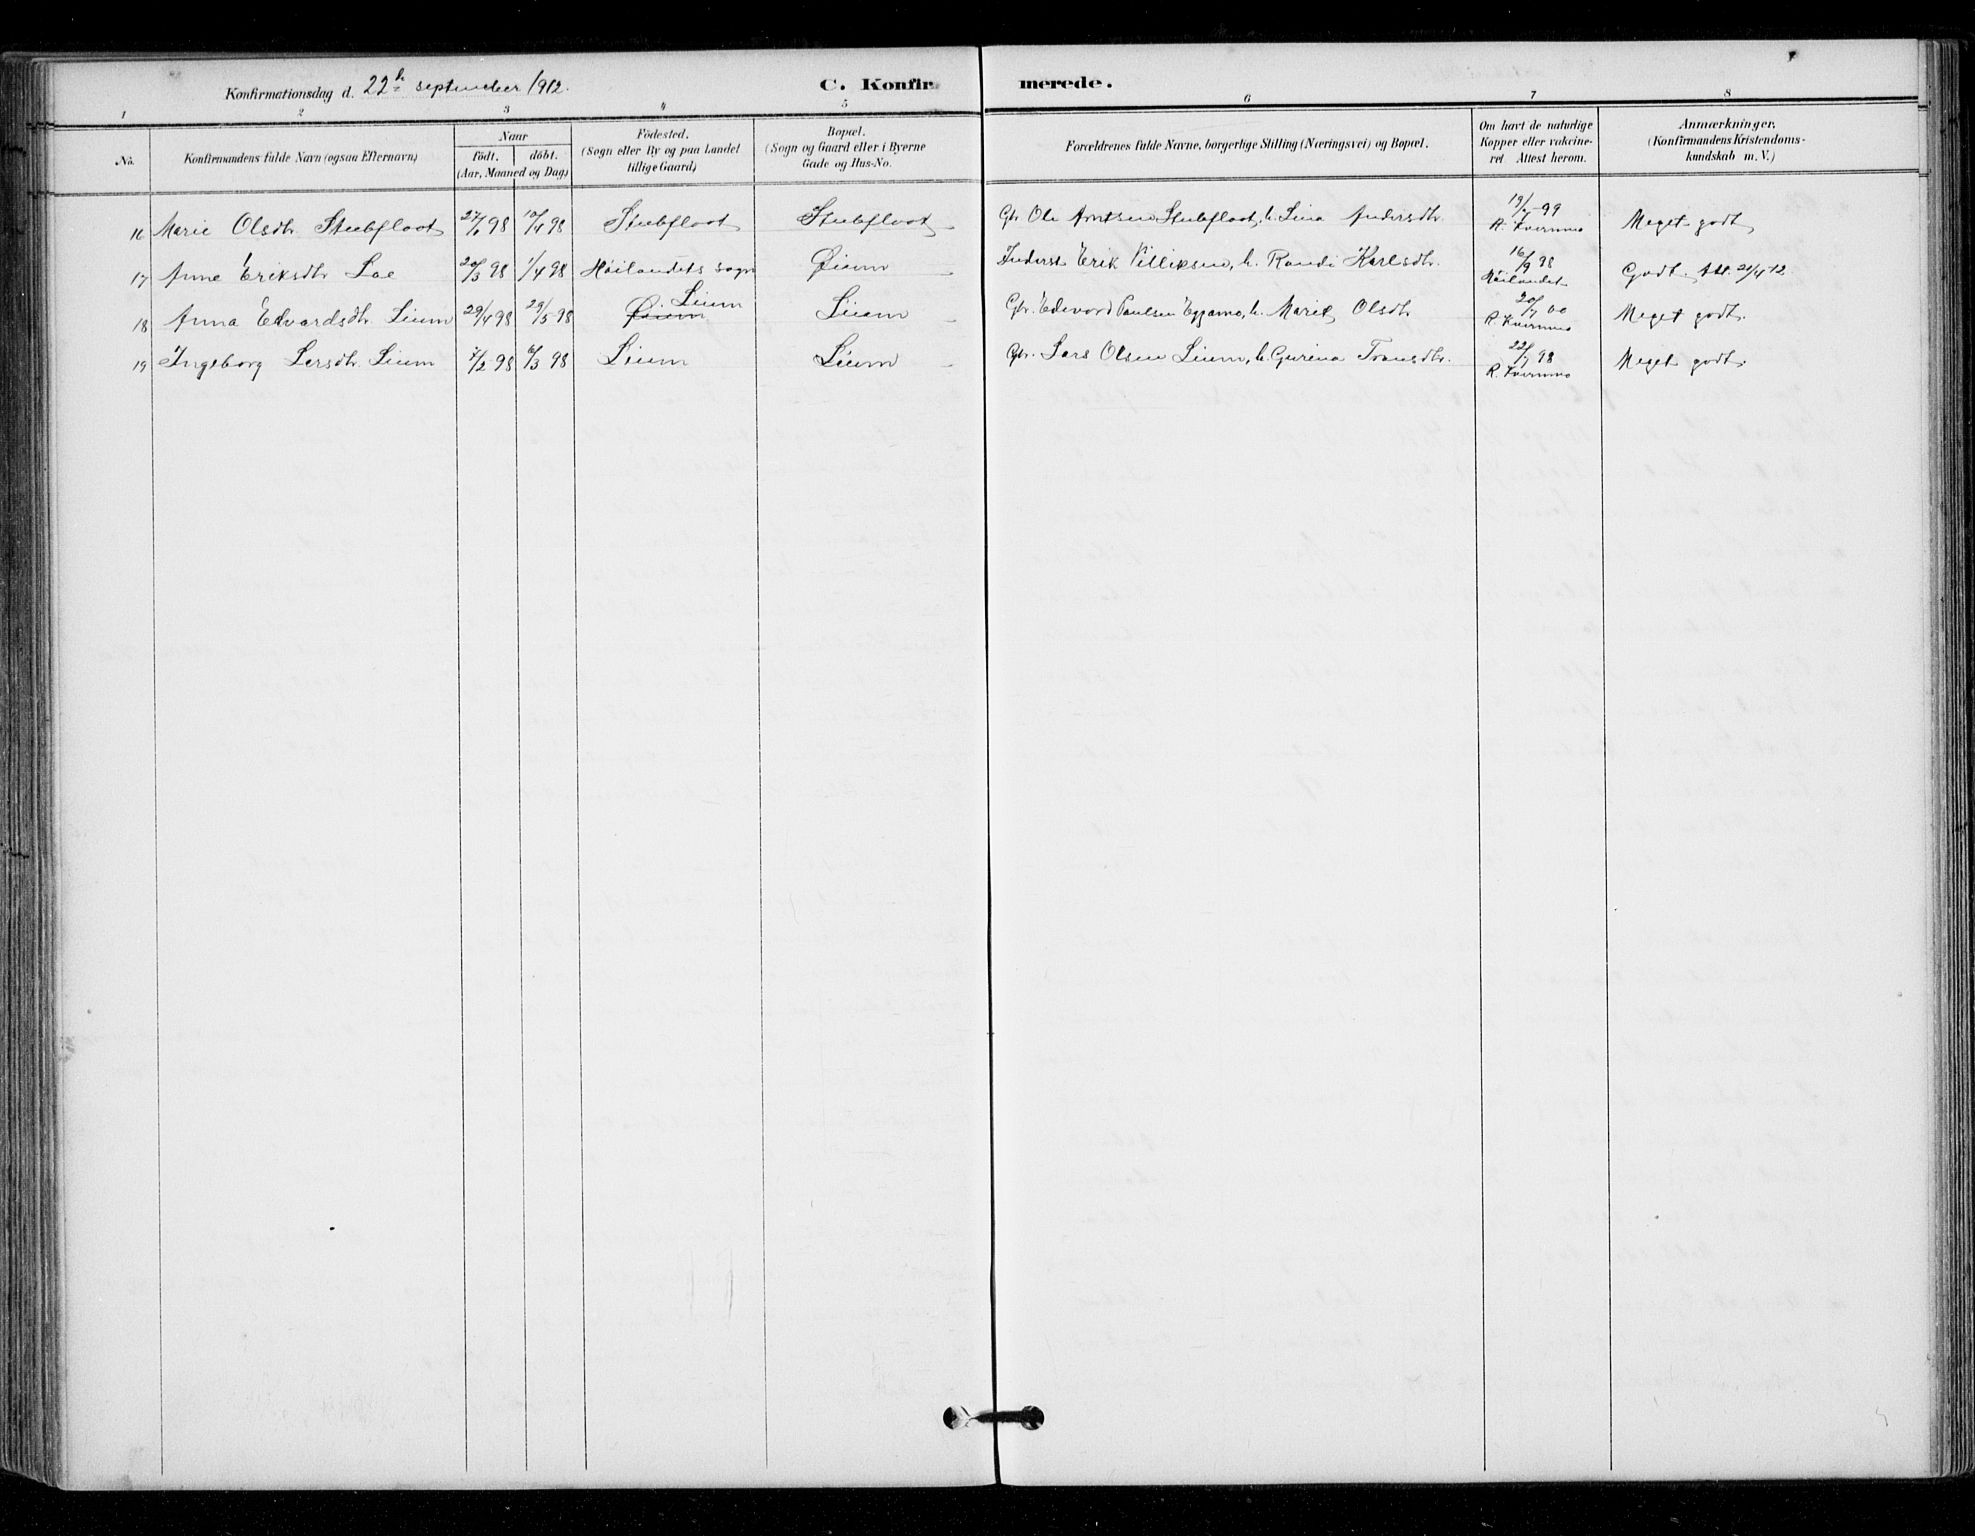 Konfirmationsdag d. 22de september 1912.
C. Konfirmerede.
1 2 3 4 5 6 7 8
No.
Konfirmandens fulde Navn (ogsaa Efternavn)
Naar
födt. döbt.
(Aar, Maaned og Dag)
Födested.
(Sogn eller By og paa Landet
tillige Gaard)
Bopæl.
(Sogn og Gaard eller i Byerne
Gade og Hus-No.
Forældrenes fulde Navne, borgerlige Stilling (Næringsvei) og Bopæl.
Om havt de naturlige
Kopper eller vakcine-
ret Attest herom.
Anmærkninger.
(Konfirmandens Kristendoms-
kundskab m. V.)
16 Marie Olsdtr. Stubfloot 98 10/4 98 Stubfloot Stubfloot Gbr. Ole Arntsen Stubfloot, h. Lina Andersdtr. 99 Meget godt
17 Anne Eriksdtr. 20/3 98 1/4 98 Höilandets sogn Öium Inderst Erik h. Randi Karlsdtr. 16/9 98 Höilandet Godt. Att. 21/4 12.
18 Anna Edvardsdtr. Lium 29/4 98 29/5 98 Öium Lium Lium Gbr. Edevord Paulsen h. Marit Olsdtr 20/7 00 Meget godt.
19 Ingeborg Larsdtr. Lium 7/2 98 6/3 98 Lium Lium Gbr. Lars Olsen Lium, h. Gurina 22/7 98 Meget godt.